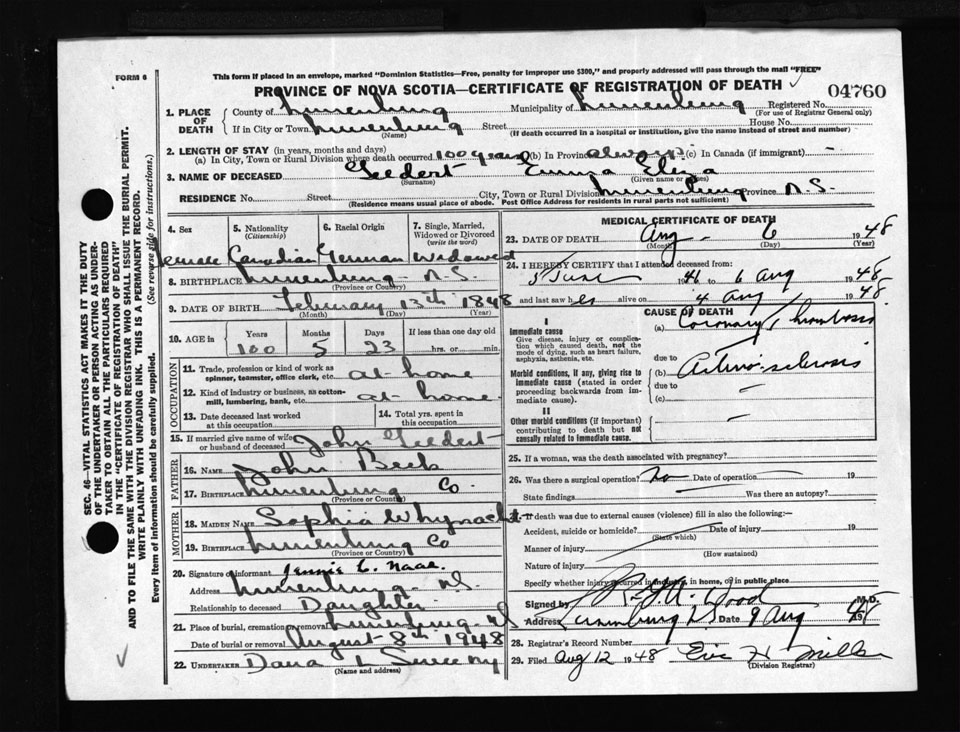 FORM 6
This form if placed in an envelope, marked "Dominion Statistics—Free, penalty for improper use $300," and properly addressed will pass through the mail "FREE"
PROVINCE OF NOVA SCOTIA—CERTIFICATE OF REGISTRATION OF DEATH
04760
1. PLACE OF DEATH
County of Lunenburg Municipality of Lunenburg Registered No.
(For use of Registrar General only)
If in City or Town Lunenburg Street House No.
(Name) (If death occurred in a hospital or institution, give the name instead of street and number)
2. LENGTH OF STAY (in years, months and days)
(a) In City, Town or Rural Division where death occurred 100 years (b) In Province always (c) In Canada (if immigrant) -
3. NAME OF DECEASED Geldert Emma Eliza
(Surname) (Given name or names)
RESIDENCE No. Street City, Town or Rural Division Lunenburg Province N.S.
(Residence means usual place of abode. Post Office Address for residents in rural parts not sufficient)
4. Sex 5. Nationality (Citizenship) 6. Racial Origin 7. Single, Married, Widowed or Divorced (write the word)
Female Canadian German Widowed
8. BIRTHPLACE Lunenburg - N.S.
(Province or Country)
9. DATE OF BIRTH February 13th 1848
(Month) (Day) (Year)
10. AGE in Years Months Days If less than one day old
100 5 23 hrs. or min.
OCCUPATION
11. Trade, profession or kind of work as spinner, teamster, office clerk, etc. at home
12. Kind of industry or business, as cotton-mill, lumbering, bank, etc. at home
13. Date deceased last worked at this occupation
14. Total yrs. spent in this occupation
15. If married give name of wife or husband of deceased John Geldert
FATHER
16. NAME John Beck
17. BIRTHPLACE Lunenburg Co.
(Province or Country)
MOTHER
18. MAIDEN NAME Sophia Whynacht
19. BIRTHPLACE Lunenburg Co
(Province or Country)
20. Signature of informant Jennie C. Naas
Address Lunenburg - N.S.
Relationship to deceased Daughter
21. Place of burial, cremation or removal Lunenburg - N.S.
Date of burial or removal August 8th 1948
22. UNDERTAKER Dana L Sweeny
(Name and address)
MEDICAL CERTIFICATE OF DEATH
23. DATE OF DEATH Aug. 6 1948
(Month) (Day)
24. I HEREBY CERTIFY that I attended deceased from:
5 June 1946 to 6 Aug 1948
and last saw her alive on 4 Aug 1948.
CAUSE OF DEATH
I
Immediate cause
Give disease, injury or complication which caused death, not the mode of dying, such as heart failure, asphyxia, asthenia, etc.
(a) Coronary Thrombosis
due to
Morbid conditions, if any, giving rise to immediate cause (stated in order proceeding backwards from immediate cause).
(b) Arterio-sclerosis
due to
(c)
II
Other morbid conditions (if important) contributing to death but not causally related to immediate cause.
25. If a woman, was the death associated with pregnancy?
26. Was there a surgical operation? No Date of operation 19
State findings Was there an autopsy?
If death was due to external causes (violence) fill in also the following:
Accident, suicide or homicide? Date of injury 19
(State which)
Manner of injury
(How sustained)
Nature of injury
Specify whether injury occurred in industry, in home, or in public place
Signed by Wood M.D.
Address Lunenburg NS Date 9 Aug 1948
28. Registrar's Record Number
29. Filed Aug 12 1948 Eric H. Miller
(Division Registrar)
SEC. 46—VITAL STATISTICS ACT MAKES IT THE DUTY
OF THE UNDERTAKER OR PERSON ACTING AS UNDER-
TAKER TO OBTAIN ALL THE PARTICULARS REQUIRED
IN THE "CERTIFICATE OF REGISTRATION OF DEATH"
AND TO FILE THE SAME WITH THE DIVISION REGISTRAR WHO SHALL ISSUE THE BURIAL PERMIT.
WRITE PLAINLY WITH UNFADING INK. THIS IS A PERMANENT RECORD.
Every item of information should be carefully supplied. (See reverse side for instructions.)